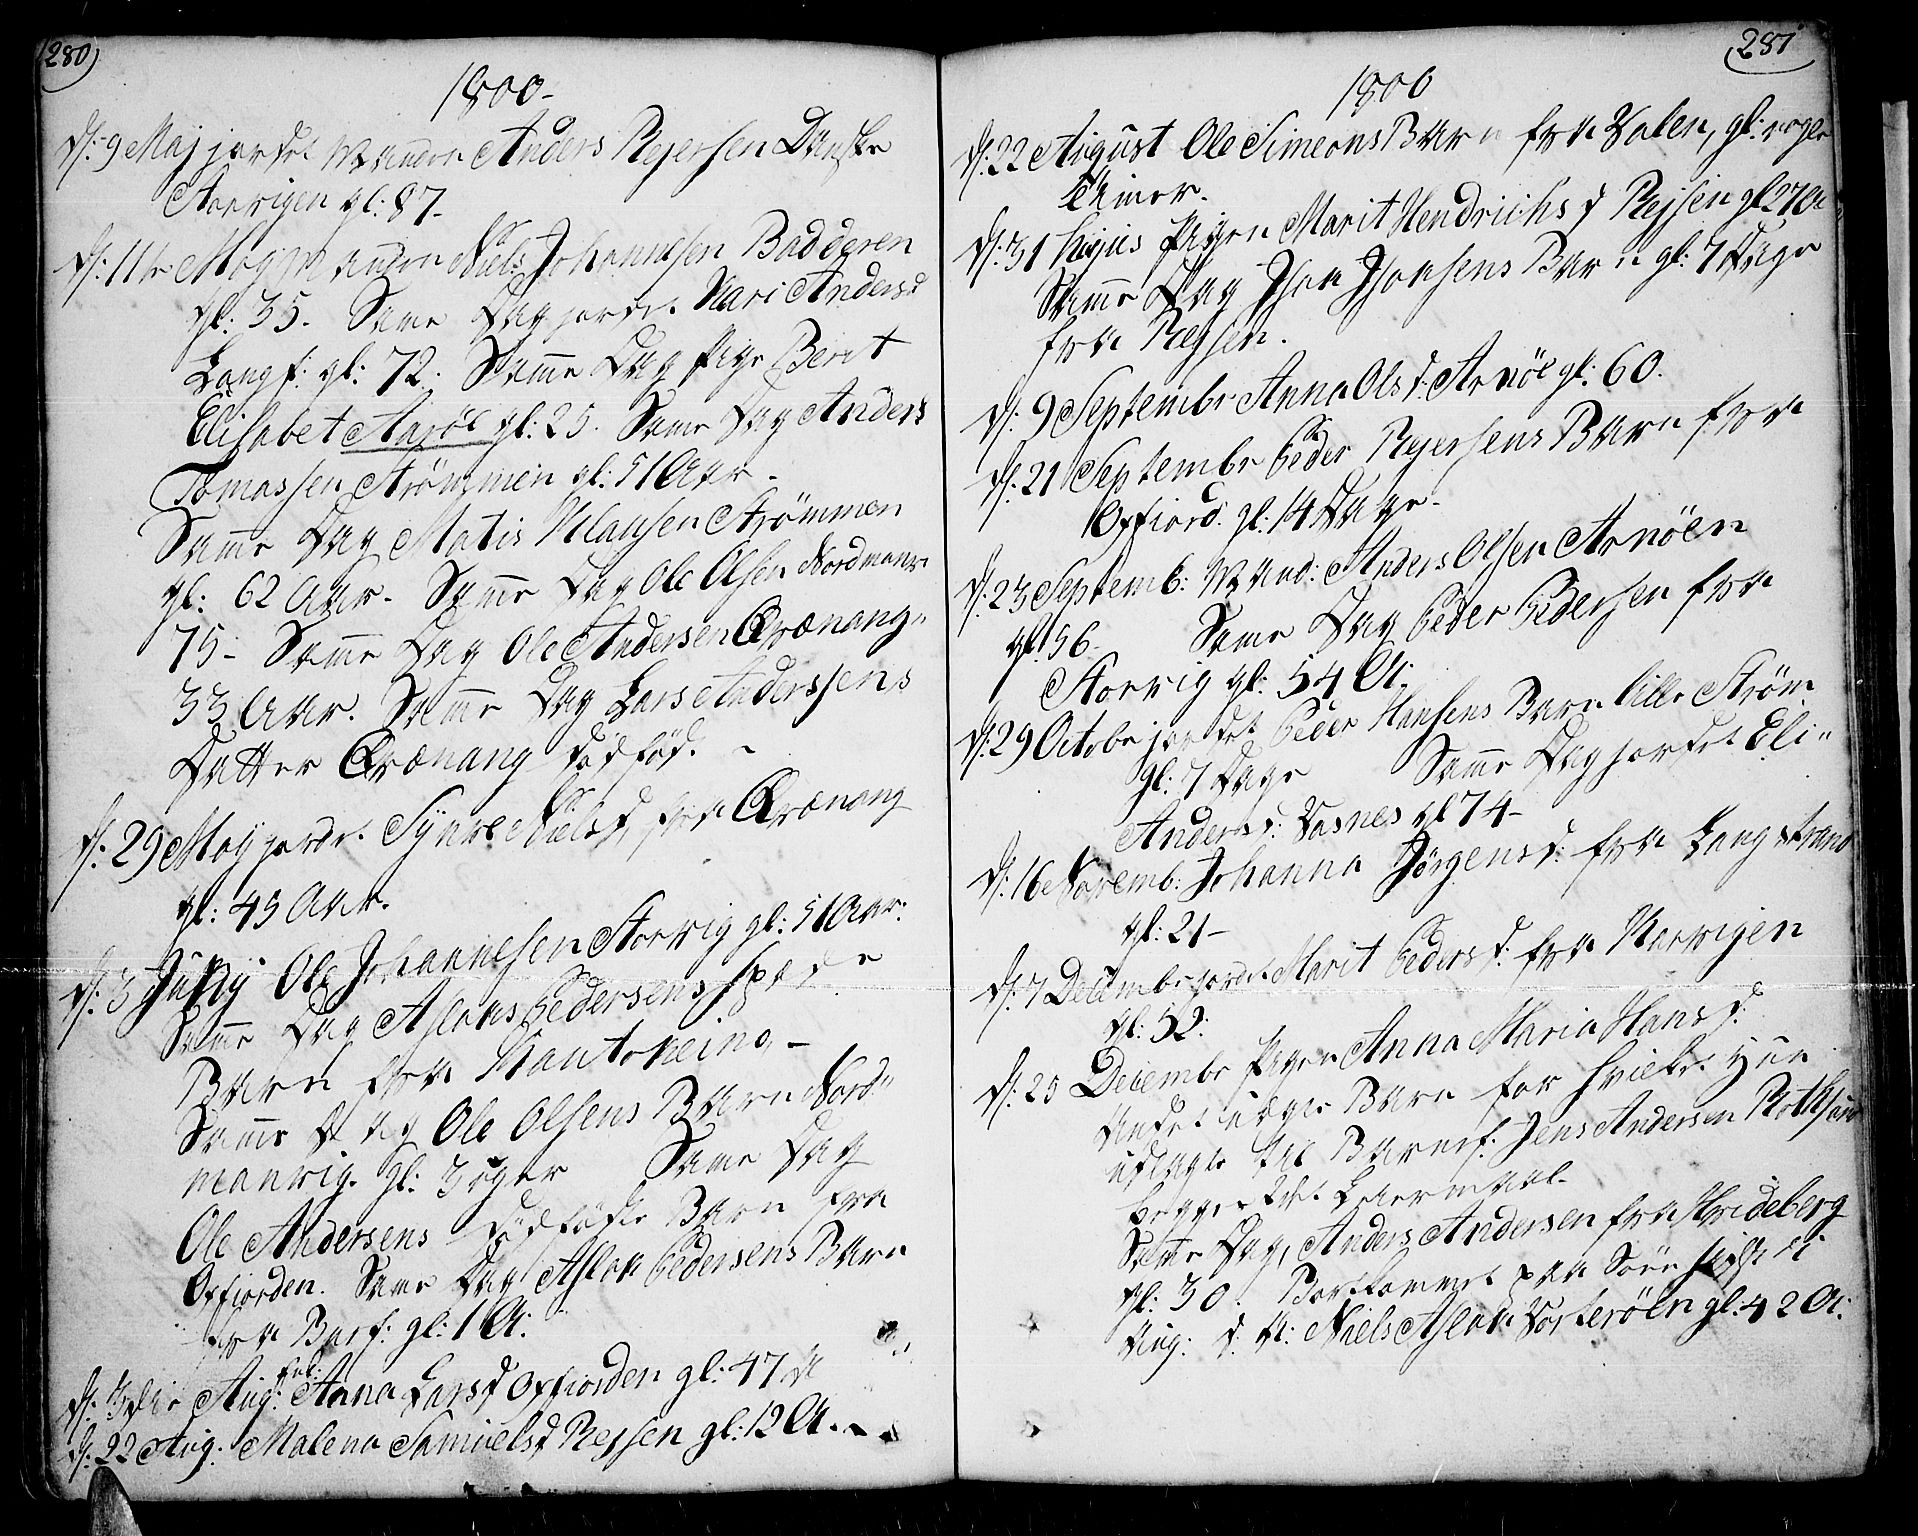 280
1800.
d: 9 Maj jordet Manden Anders Rejersen Danske
Storvigen gl: 87.
d: 11te Maÿ Manden Niels Johannesen Badderen
gl: 35. Same Dag jordet Kari Andersd
Langf: gl: 72. Same Dag Pige Berit
Elisabet Aarøe gl: 25. Same Dag Anders
Tomassen Strömmen gl: 51 Aar.
Same Dag Matis Klausen Strömmen
gl: 62 Aar. Same Dag Ole Olsen Nordmanv:
75 - Same Dag Ole Andersen Qvænang
33 Aar. Same Dag Lars Anderssens
Datter Qvænang dødfød.
d: 29 Maÿ jordet Synve Nielsd fra Qvænang
gl: 45 Aar.
d: 3 Julÿ Ole Johannesen Storvig gl: 51 Aar:
Same Dag Aslaks Pedersens spæde
Barn fra Kautokeino -
Same Dag Ole Olsens Barn Nord"
manvig. gl: 3 Uger Same Dag
Ole Andersens dødfødte Barn fra
Oxfjorden. Same Dag Aslak Pedersens Barn
fra Burf: gl: 1 A:
d: Aug: Anna Larsd Oxfiorden gl: 47 A
d: 22 Aug. Malena Samuelsd Rejsen gl: 12 A.
281
1800
d: 22 August Ole Simeons Barn fra Valen, gl: nogle
Timer.
d: 31 hujus Pigen Marit Hendrichsd Rejsen gl 27 A
Same Dag Isak Isaksens Barn gl: 7 Dage
fra Rejsen.
d: 9 Septembr Anna Olsd: Arnöe gl: 60.
d: 21 Septembr Peder Rejersens Barn fra
Oxfiord. gl: 14 Dage.
d: 23 Septemb: Mand: Anders Olsen Arnöen
gl: 56. Same Dag Peder Pedersen fra
Storvig gl: 54 A:
d: 29 Octobr jordet Peder Hansens Barn lille Ström
gl: 7 Dage Same Dag jordet Eli"
Andersd: Vasnes gl 74 -
d: 16 Novemb: Johanna Jörgensd: fra Langstrand
gl: 21 -
d: 7 Decembr jordet Marit Pedersd: fra Karvigen
gl: 52:
d: 25 Decembr Pigen Anna Maria Hansd:
uægte Barn for hvilket hun
udlagte til Barnef: Jens Andersen Rotsund
begges Leiermaal.
Same Dag, Anders Andersen fra Hvideberg
gl: 30. Bortkommet paa Söen sidst i
Aug: d: A: Niels Aslak Vorteröen gl: 42 A: